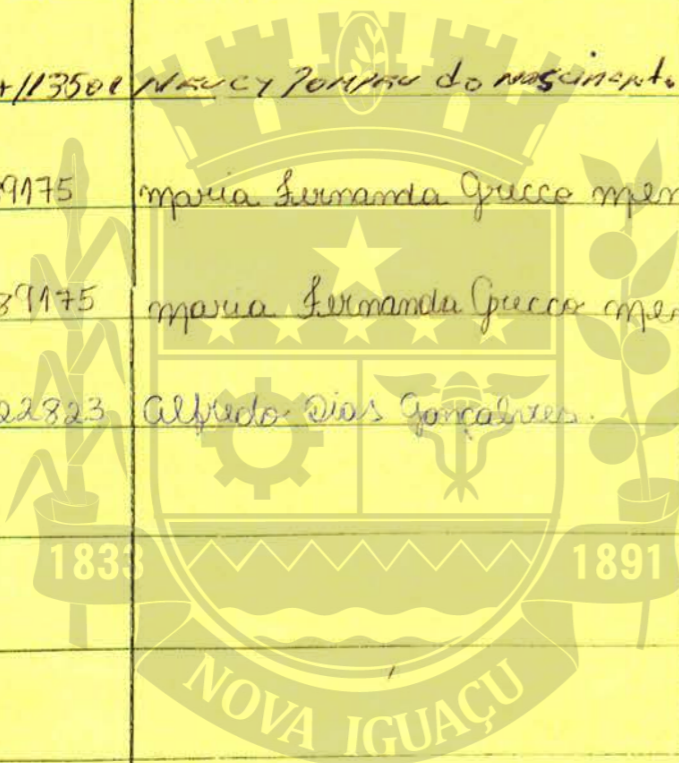 113501 Neucy Pompeu do nascimento
9175 maria Fernanda Grecco men
39175 maria Fernanda Grecco me
22823 Alfredo Dias Gonçalves.
1833 1891
NOVA IGUAÇU